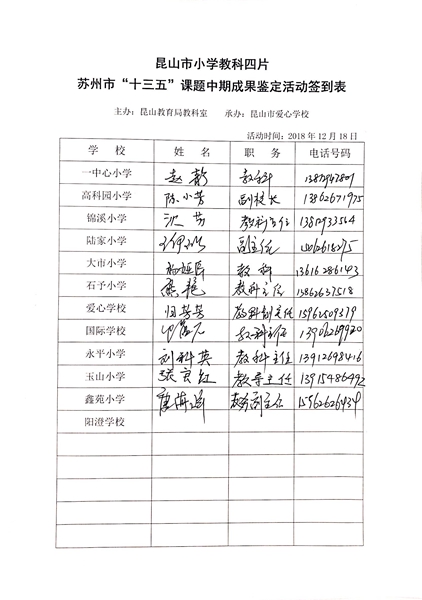 昆山市小学教科四片
苏州市“十三五”课题中期成果鉴定活动签到表
主办：昆山教育局教科室 承办：昆山市爱心学校
活动时间：2018 年 12 月 18 日
学 校 姓 名 职 务 电话号码
一中心小学 赵 教科
高科园小学 陈小芳 副校长 13862671975
锦溪小学 沈芳 教科主任 13812933564
陆家小学 副主任
大市小学 教 科 13616286143
石予小学 教科主任 13862637518
爱心学校 归芳芳 教科副主任 15962609379
国际学校 教科主任
永平小学 刘科英 教科主任 13912698416
玉山小学 张良红 教导主任 13915486492
鑫苑小学 教务副主任 15962626434
阳澄学校